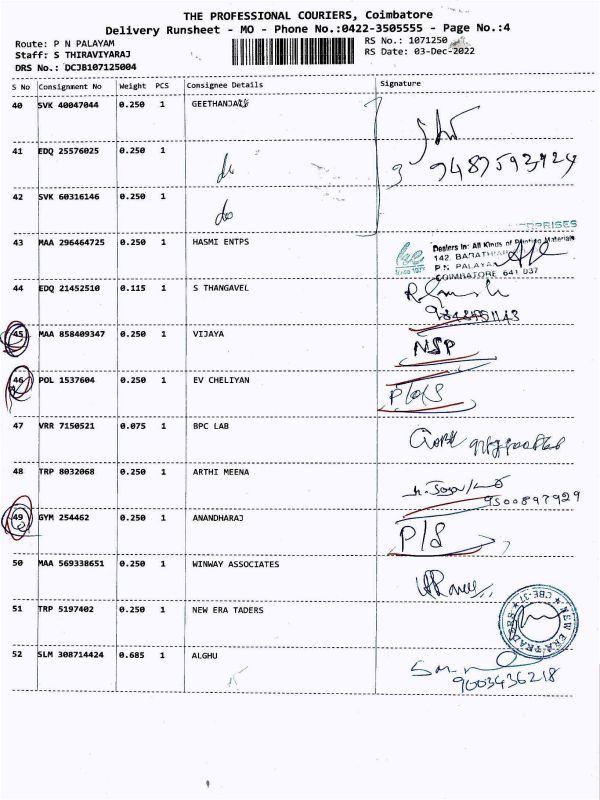 THE PROFESSIONAL COURIERS, Coimbatore
Delivery Runsheet - MO - Phone No.:0422-3505555 - Page No.:4
Route: P N PALAYAM
RS No.: 1071250
Staff: S THIRAVIYARAJ
RS Date: 03-Dec-2022
DRS No.: DCJB107125004
S No Consignment No Weight PCS Consignee Details Signature
40 SVK 40047044 0.250 1 GEETHANJALI
41 EDQ 25576025 0.250 1 do
42 SVK 60316146 0.250 1 do
43 MAA 296464725 0.250 1 HASMI ENTPS
Dealers in: All Kinds of Printing Materials
142, BARATHI
P.N. PALAYAM
COIMBATORE 641 037
44 EDQ 21452510 0.115 1 S THANGAVEL
45 MAA 858409347 0.250 1 VIJAYA NSP
46 POL 1537604 0.250 1 EV CHELIYAN P/o/S
47 VRR 7150521 0.075 1 BPC LAB
48 TRP 8032068 0.250 1 ARTHI MEENA
9500897929
49 GYM 254462 0.250 1 ANANDHARAJ P/S
50 MAA 569338651 0.250 1 WINWAY ASSOCIATES
51 TRP 5197402 0.250 1 NEW ERA TADERS
NEW ERA TRAD CBE-37
52 SLM 308714424 0.685 1 ALGHU
9003436218